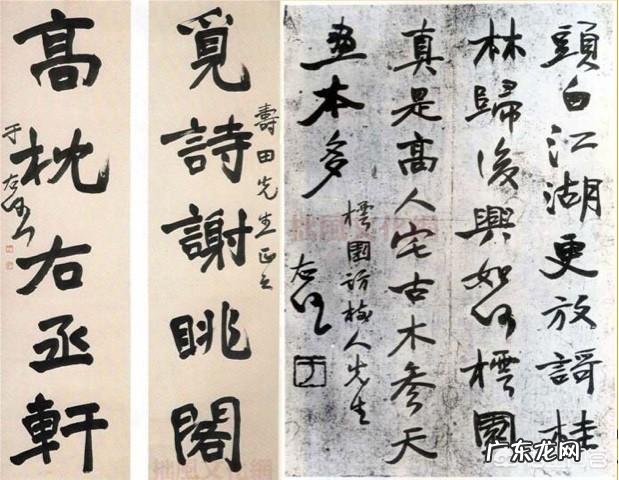 頭白江湖更放謌桂
林歸後興如何樗園
真是高人宅古木參天
畫本多
樗園訪梅人先生
右任
覓詩謝眺閣
壽田先生正之
高枕右丞軒
于右任
拙風文化網
广东龙网